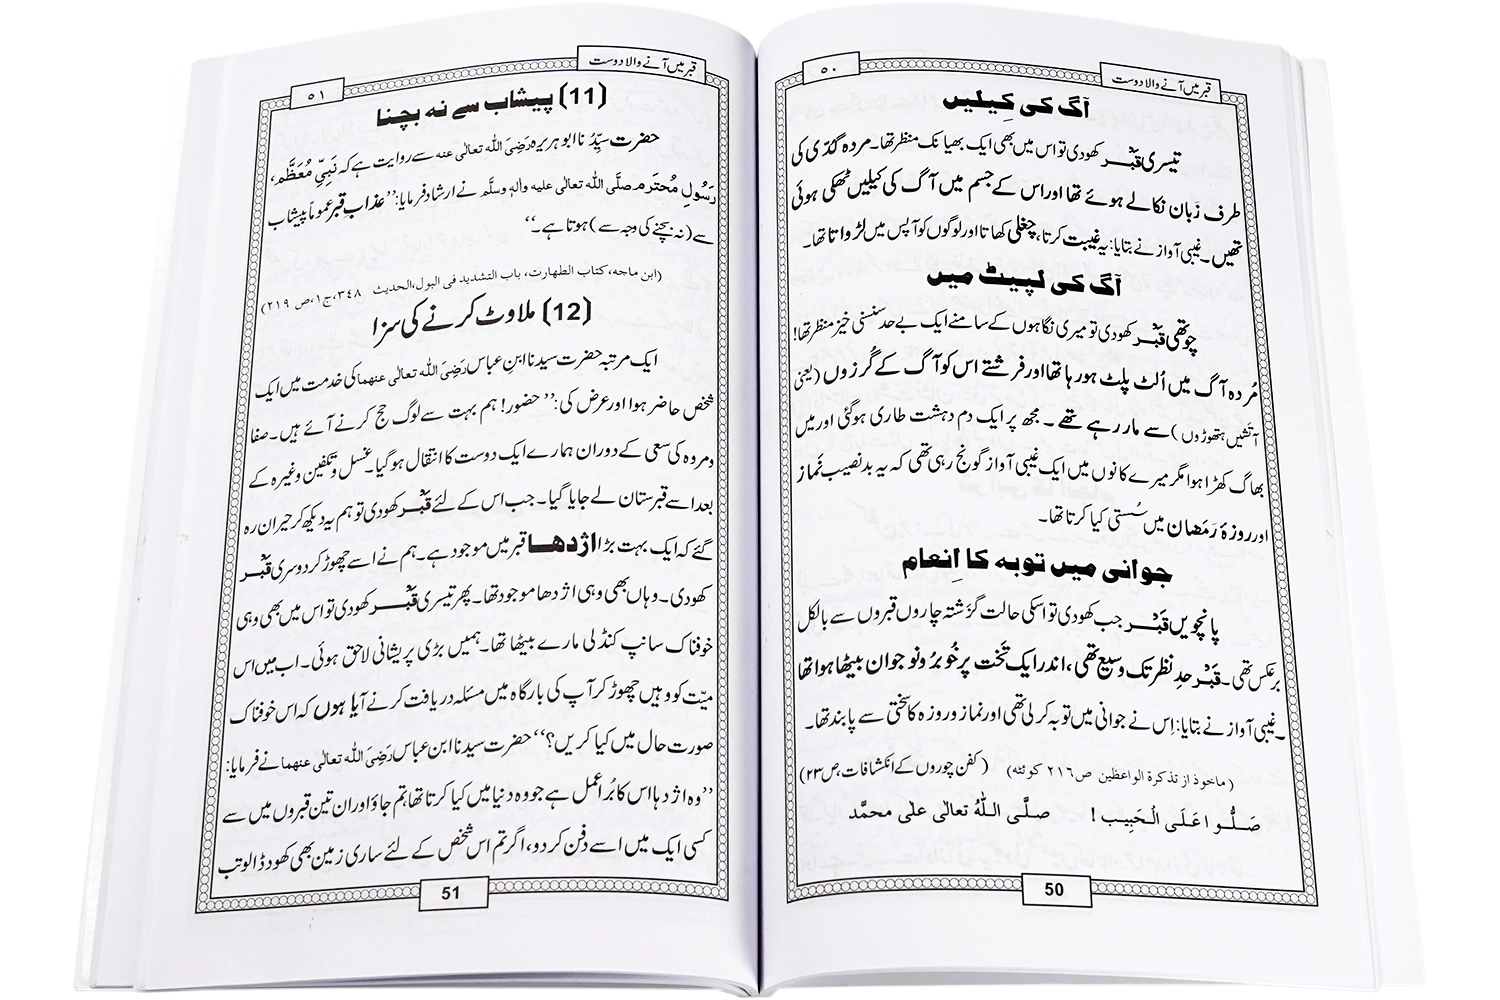 قبر میں آنے والا دوست
۵۰
آگ کی کِیلیں
تیسری قَبْر کھودی تو اس میں بھی ایک بھیانک منظر تھا۔ مردہ گدّی کی
طرف زَبان نکالے ہوئے تھا اور اس کے جسم میں آگ کی کیلیں ٹھکی ہوئی
تھیں۔ غیبی آواز نے بتایا: یہ غیبت کرتا، چغلی کھاتا اور لوگوں کو آپس میں لڑواتا تھا۔
آگ کی لپیٹ میں
چوتھی قَبْر کھودی تو میری نگاہوں کے سامنے ایک بے حد سنسنی خیز منظر تھا!
مُردہ آگ میں اُلٹ پلٹ ہو رہا تھا اور فرشتے اس کو آگ کے گُرزوں (یعنی
آتَشیں ہتھوڑوں) سے مار رہے تھے۔ مجھ پر ایک دم دہشت طاری ہو گئی اور میں
بھاگ کھڑا ہوا مگر میرے کانوں میں ایک غیبی آواز گونج رہی تھی کہ یہ بد نصیب نَماز
اور روزۂ رَمَضان میں سُستی کیا کرتا تھا۔
جوانی میں توبہ کا اِنعام
پانچویں قَبْر جب کھودی تو اسکی حالت گزَشتہ چاروں قبروں سے بالکل
برعکس تھی۔ قَبْر حدِ نظر تک وسیع تھی، اندر ایک تَخت پر خُوبرُو نوجوان بیٹھا ہوا تھا
۔ غیبی آواز نے بتایا: اِس نے جوانی میں توبہ کر لی تھی اور نماز و روزہ کا سختی سے پابند تھا۔
(ماخوذ از تذکرۃ الواعظین ص ۲۱۶ کوئٹہ) (کفن چوروں کے انکشافات، ص ۲۳)
صَلُّوا عَلَی الْحَبِیب! صلَّی اللّٰہُ تعالیٰ علیٰ محمَّد
50
قبر میں آنے والا دوست
۵۱
(11) پیشاب سے نہ بچنا
حضرت سیِّدُنا ابو ہریرہ رَضِیَ اللّٰہ تعالیٰ عنہ سے روایت ہے کہ نَبیِّ مُعَظَّم،
رَسُولِ مُحترم صلَّی اللّٰہ تعالیٰ علیہ واٰلہٖ وسلَّم نے ارشاد فرمایا: ’’عذابِ قبر عموماً پیشاب
سے (نہ بچنے کی وجہ سے) ہوتا ہے۔‘‘
(ابن ماجہ، کتاب الطھارت، باب التشدید فی البول، الحدیث ۳۴۸، ج۱، ص ۲۱۹)
(12) ملاوٹ کرنے کی سزا
ایک مرتبہ حضرت سیدنا ابنِ عباس رَضِیَ اللّٰہ تعالیٰ عنہما کی خدمت میں ایک
شخص حاضر ہوا اور عرض کی: ’’حضور! ہم بہت سے لوگ حج کرنے آئے ہیں۔ صفا
و مروہ کی سعی کے دوران ہمارے ایک دوست کا انتقال ہو گیا۔ غسل و تکفین وغیرہ کے
بعد اسے قبرستان لے جایا گیا۔ جب اس کے لئے قَبْر کھودی تو ہم یہ دیکھ کر حیران رہ
گئے کہ ایک بہت بڑا اژدھا قبر میں موجود ہے۔ ہم نے اسے چھوڑ کر دوسری قَبْر
کھودی۔ وہاں بھی وہی اژدھا موجود تھا۔ پھر تیسری قَبْر کھودی تو اس میں بھی وہی
خوفناک سانپ کنڈلی مارے بیٹھا تھا۔ ہمیں بڑی پریشانی لاحق ہوئی۔ اب میں اس
میّت کو وہیں چھوڑ کر آپ کی بارگاہ میں مسئلہ دریافت کرنے آیا ہوں کہ اس خوفناک
صورت حال میں کیا کریں؟‘‘ حضرت سیدنا ابن عباس رَضِیَ اللّٰہ تعالیٰ عنہما نے فرمایا:
’’وہ اژدہا اس کا بُرا عمل ہے جو وہ دنیا میں کیا کرتا تھا، تم جاؤ اور ان تین قبروں میں سے
کسی ایک میں اسے دفن کر دو، اگر تم اس شخص کے لئے ساری زمین بھی کھود ڈالو تب
51